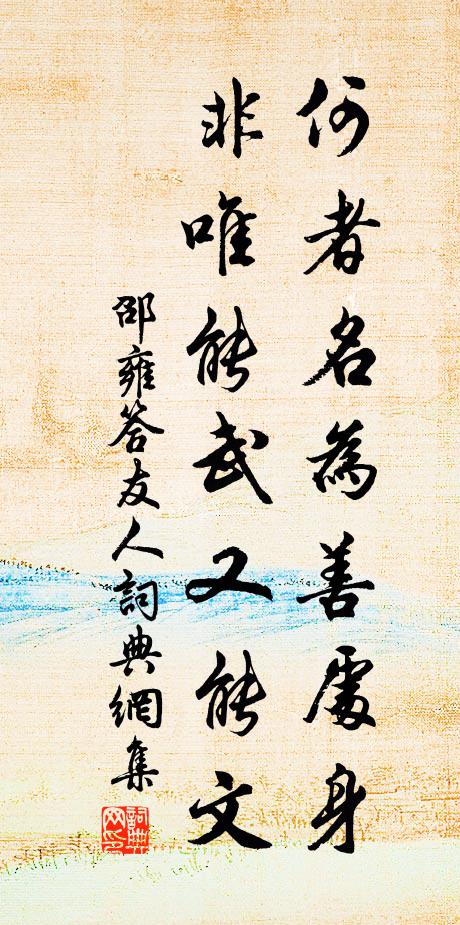 何者名為善處身
非唯能武又能文
邵雍答友人詞典網集
詞典网印